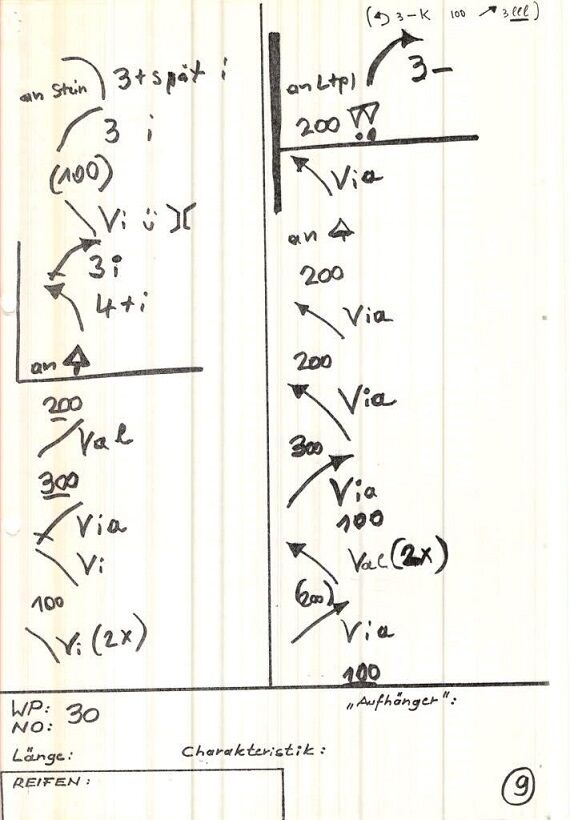 (3-K 100 3 lll)
an Stein 3+ spät i
3 i
(100)
Vi ü
3i
4+i
an
200
Val
300
Via
Vi
100
Vi (2x)
3-
an Ltpl
200
Via
an
200
Via
200
Via
300
Via
100
Val (2x)
(200)
Via
100
WP: 30
NO:
„Aufhänger":
Länge:
Charakteristik:
REIFEN:
9